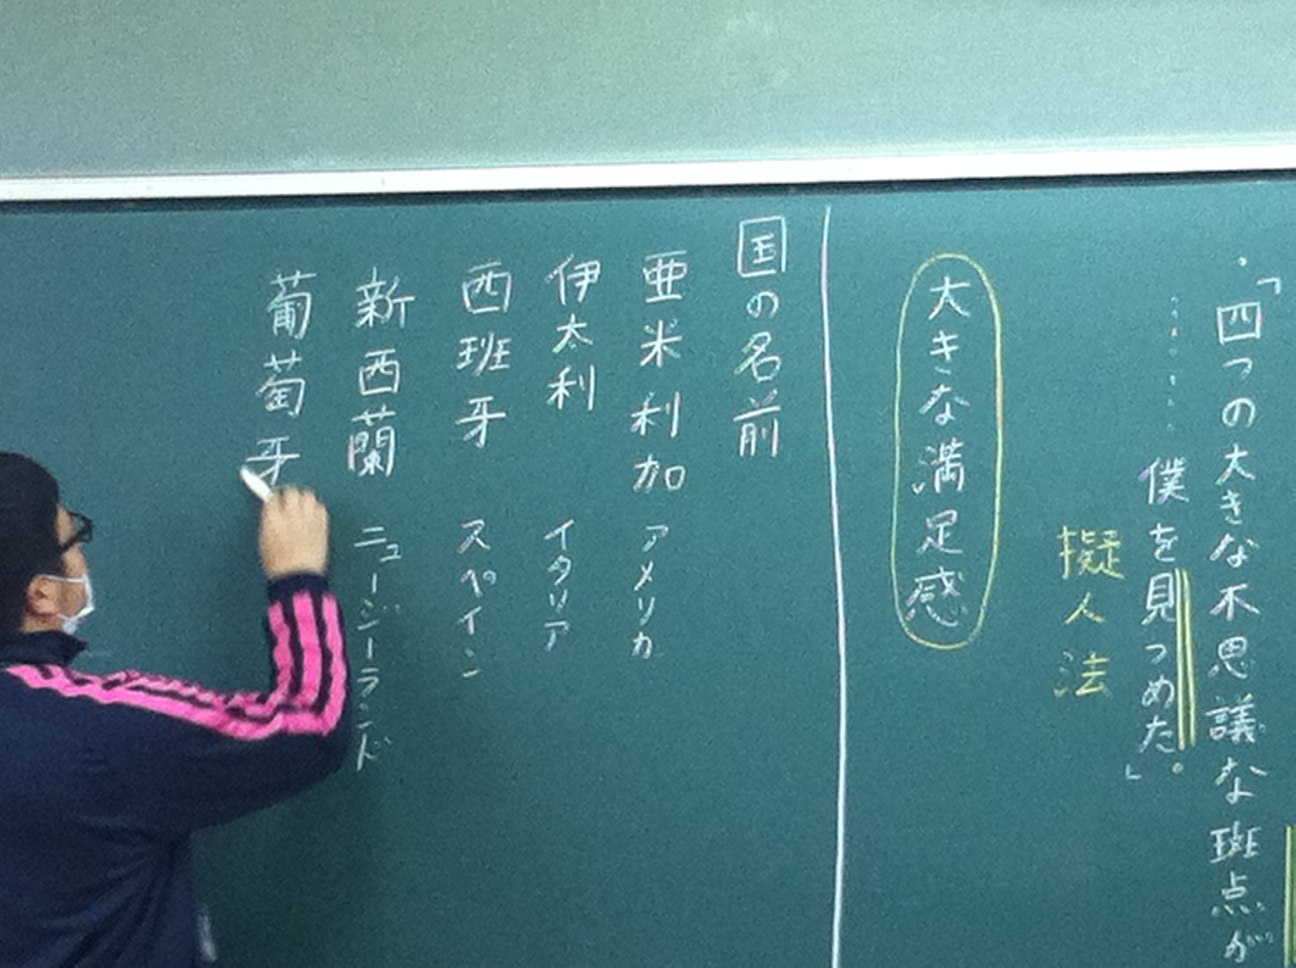 ・「四つの大きな不思議な斑点が
……僕を見つめた。」
擬人法
大きな満足感
国の名前
亜米利加 アメリカ
伊太利 イタリア
西班牙 スペイン
新西蘭 ニュージーランド
葡萄牙